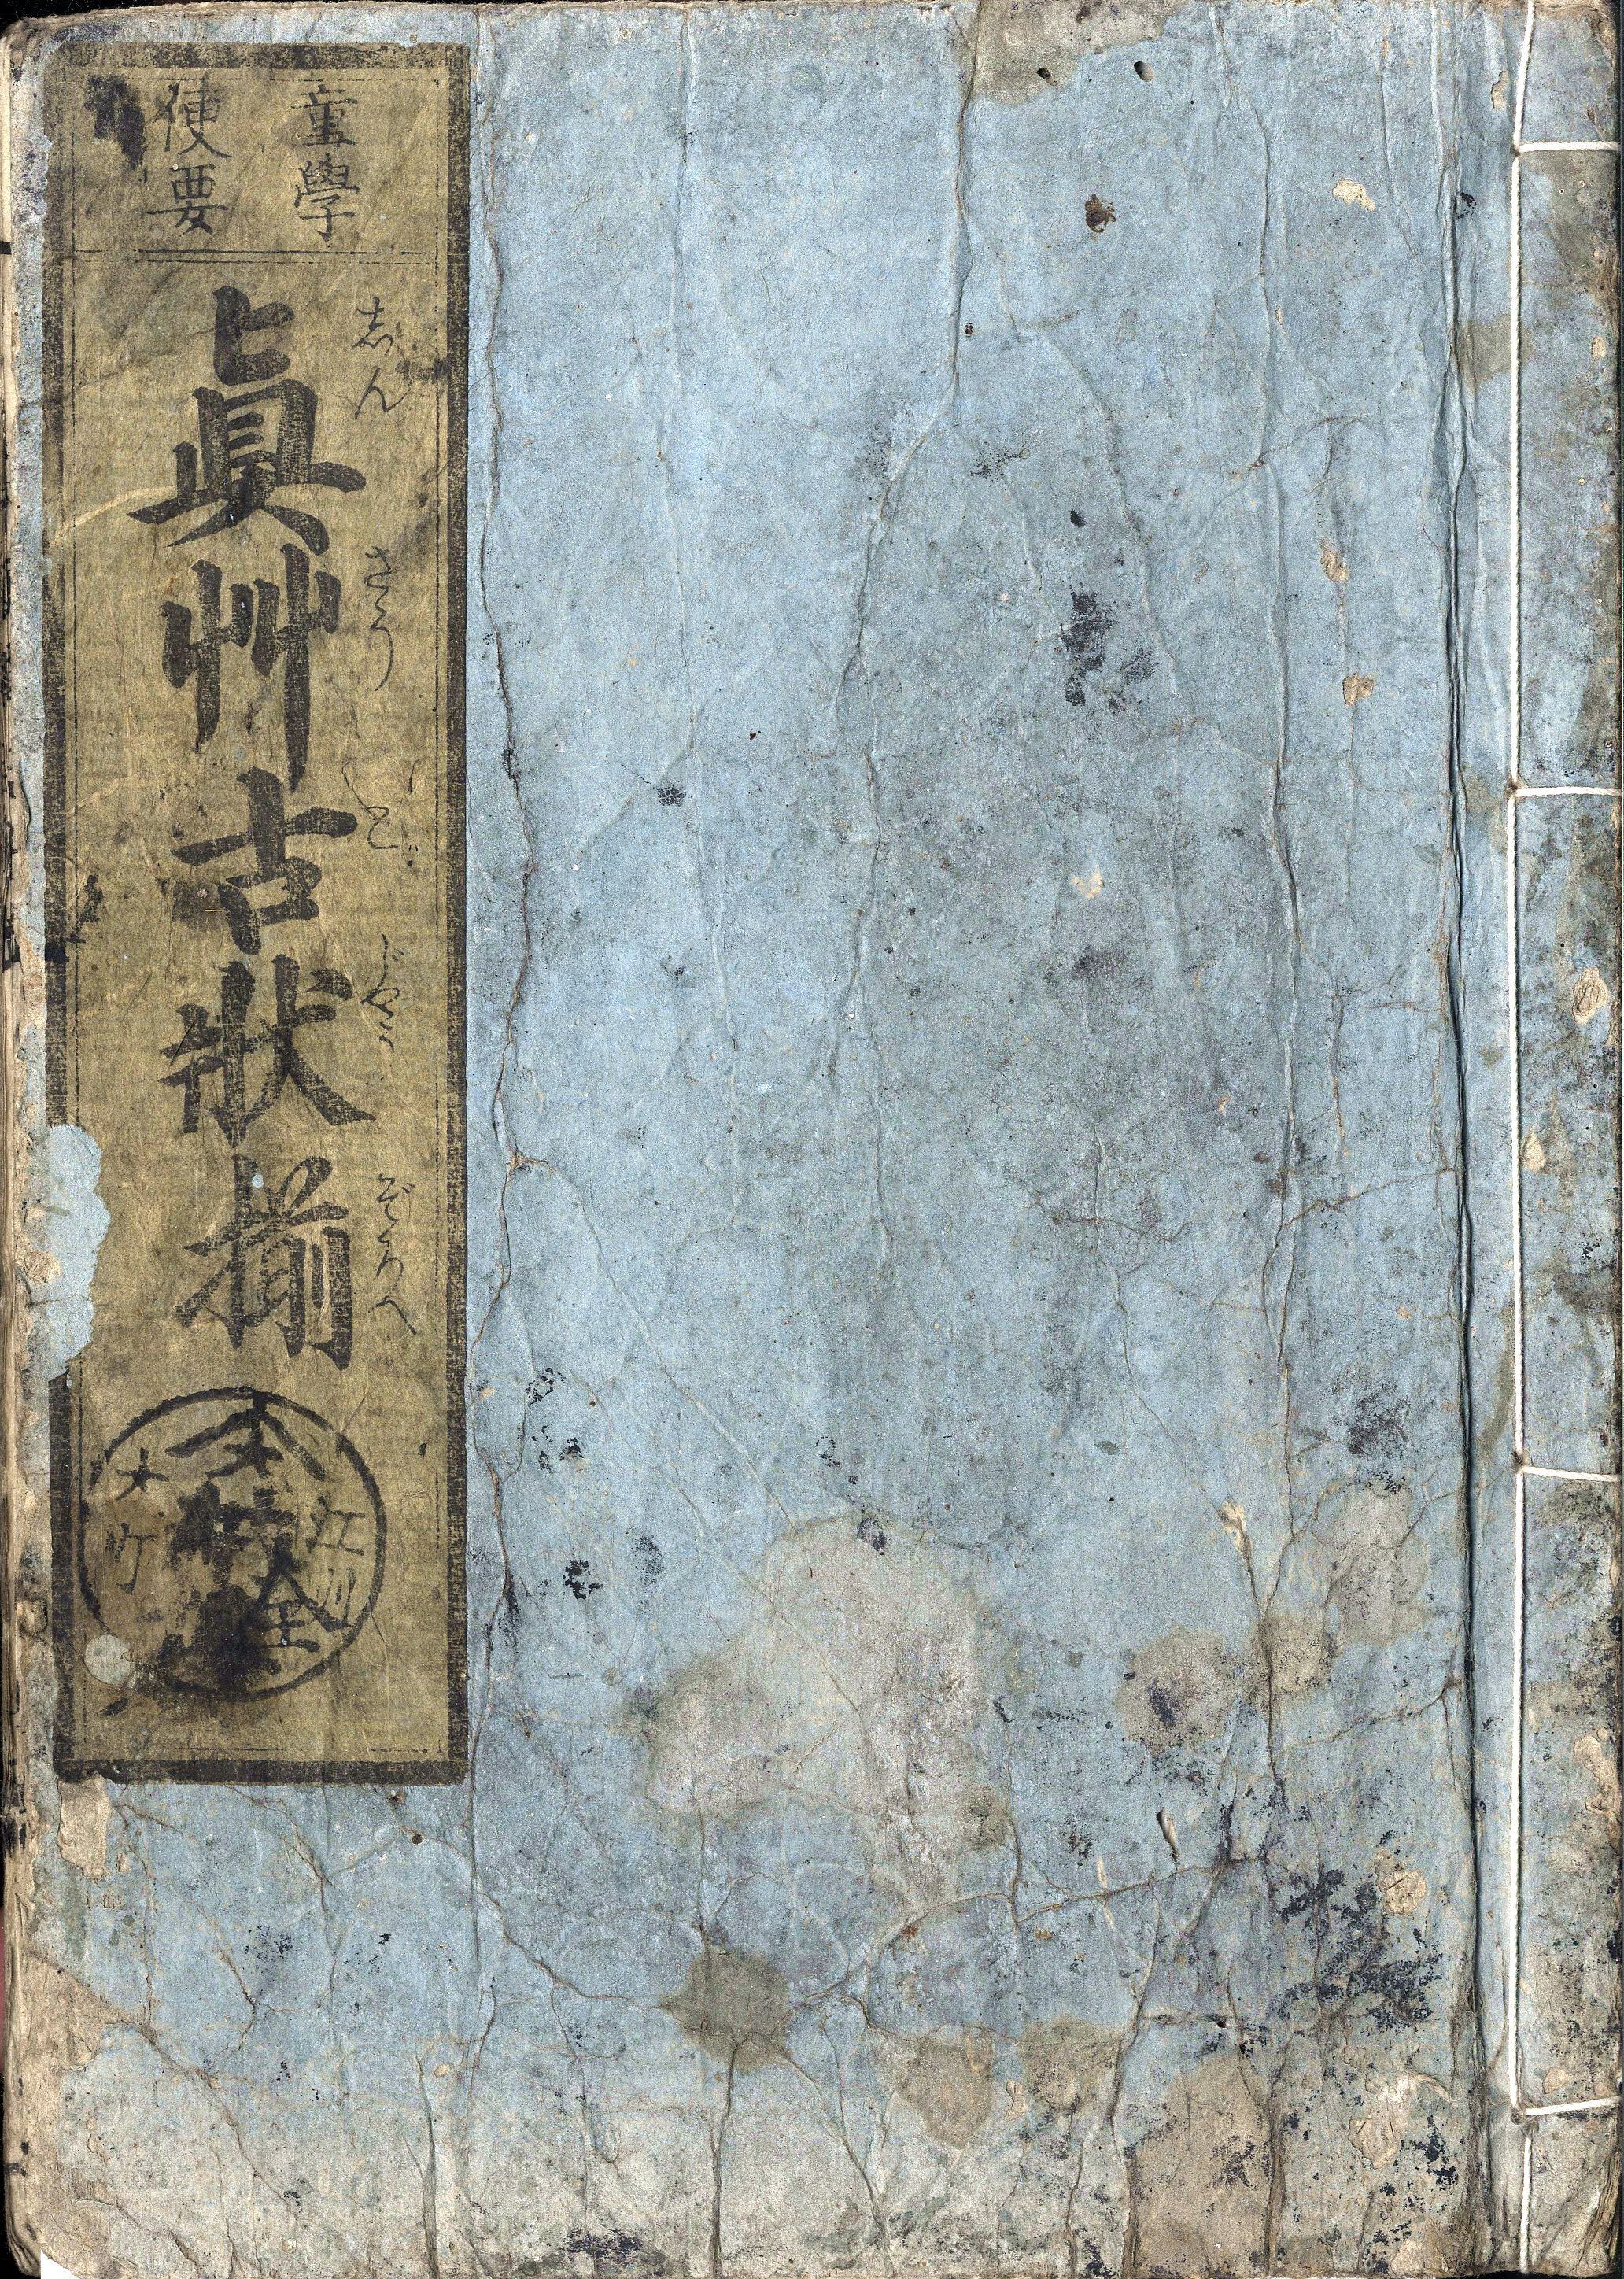 童學
便要
しん さう こ じやう ぞろへ
眞艸古狀揃
全
江州
大